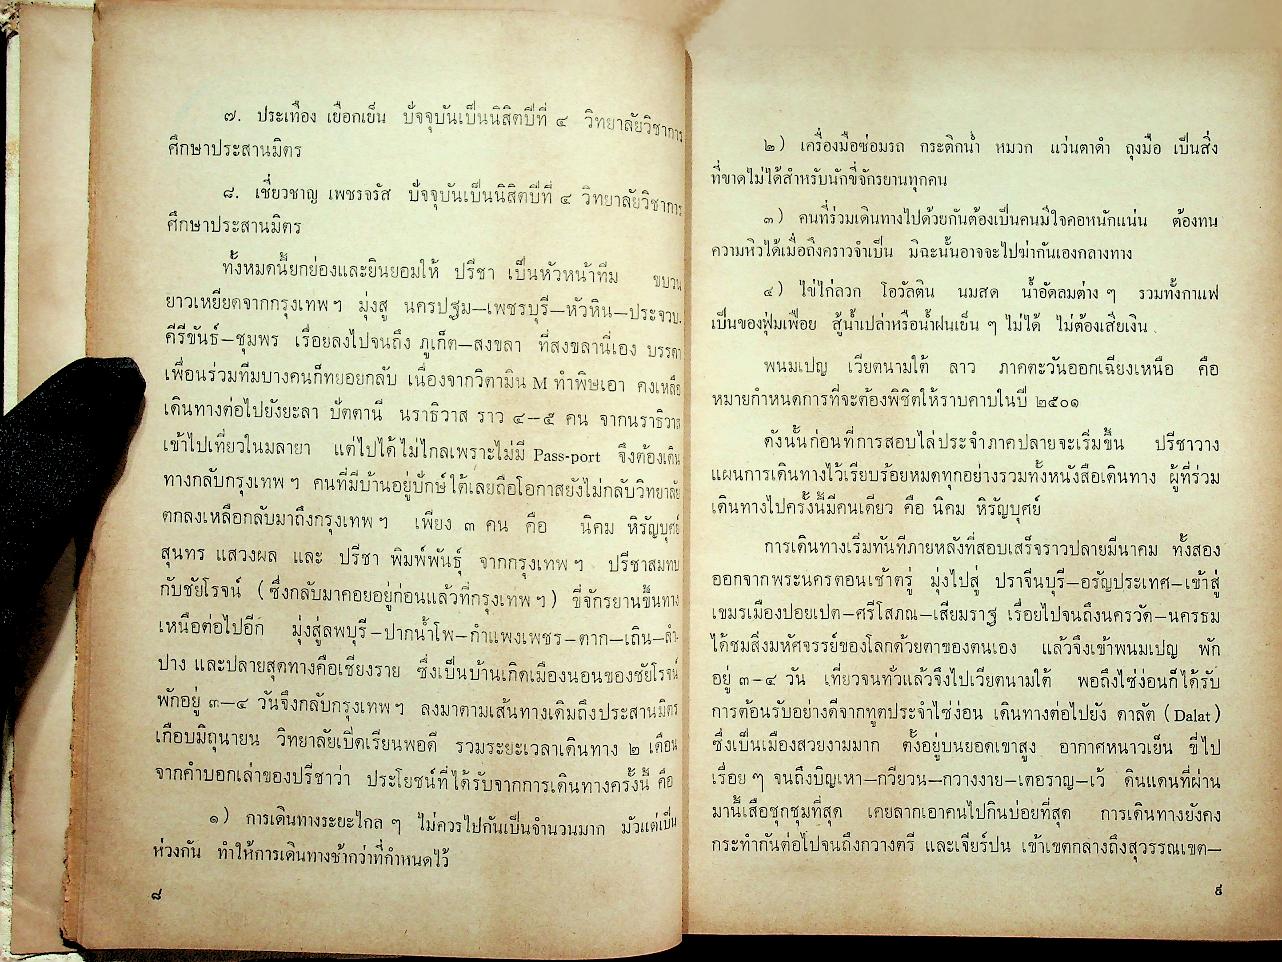 ๗. ประเทือง เยือกเย็น ปัจจุบันเป็นนิสิตปีที่ ๔ วิทยาลัยวิชาการ
ศึกษาประสานมิตร
๘. เชี่ยวชาญ เพชรจรัส ปัจจุบันเป็นนิสิตปีที่ ๔ วิทยาลัยวิชาการ
ศึกษาประสานมิตร
ทั้งหมดนี้ยกย่องและยินยอมให้ ปรีชา เป็นหัวหน้าทีม ขบวน
ยาวเหยียดจากกรุงเทพฯ มุ่งสู่ นครปฐม—เพชรบุรี—หัวหิน—ประจวบ.
คีรีขันธ์—ชุมพร เรื่อยลงไปจนถึง ภูเก็ต—สงขลา ที่สงขลานี่เอง บรรดา
เพื่อนร่วมทีมบางคนก็ทยอยกลับ เนื่องจากวิตามิน M ทำพิษเอา คงเหลือ
เดินทางต่อไปยังยะลา ปัตตานี นราธิวาส ราว ๔—๕ คน จากนราธิวาส
เข้าไปเที่ยวในมลายา แต่ไปได้ไม่ไกลเพราะไม่มี Pass-port จึงต้องเดิน
ทางกลับกรุงเทพฯ คนที่มีบ้านอยู่ปักษ์ใต้เลยถือโอกาสยังไม่กลับวิทยาลัย
ตกลงเหลือกลับมาถึงกรุงเทพฯ เพียง ๓ คน คือ นิคม หิรัญบุศย์
สุนทร แสวงผล และ ปรีชา พิมพ์พันธุ์ จากกรุงเทพฯ ปรีชาสมทบ
กับชัยโรจน์ (ซึ่งกลับมาคอยอยู่ก่อนแล้วที่กรุงเทพฯ) ขี่จักรยานขึ้นทาง
เหนือต่อไปอีก มุ่งสู่ลพบุรี—ปากน้ำโพ—กำแพงเพชร—ตาก—เถิน—ลำ-
ปาง และปลายสุดทางคือเชียงราย ซึ่งเป็นบ้านเกิดเมืองนอนของชัยโรจน์
พักอยู่ ๓—๔ วันจึงกลับกรุงเทพฯ ลงมาตามเส้นทางเดิมถึงประสานมิตร
เกือบมิถุนายน วิทยาลัยเปิดเรียนพอดี รวมระยะเวลาเดินทาง ๒ เดือน
จากคำบอกเล่าของปรีชาว่า ประโยชน์ที่ได้รับจากการเดินทางครั้งนี้ คือ
๑) การเดินทางระยะไกลๆ ไม่ควรไปกันเป็นจำนวนมาก มัวแต่เป็น
ห่วงกัน ทำให้การเดินทางช้ากว่าที่กำหนดไว้
๘
๒) เครื่องมือซ่อมรถ กระติกน้ำ หมวก แว่นตาดำ ถุงมือ เป็นสิ่ง
ที่ขาดไม่ได้สำหรับนักขี่จักรยานทุกคน
๓) คนที่ร่วมเดินทางไปด้วยกันต้องเป็นคนมีใจคอหนักแน่น ต้องทน
ความหิวได้เมื่อถึงคราวจำเป็น มิฉะนั้นอาจจะไปฆ่ากันเองกลางทาง
๔) ไข่ไก่ลวก โอวัลติน นมสด น้ำอัดลมต่างๆ รวมทั้งกาแฟ
เป็นของฟุ่มเฟือย สู้น้ำเปล่าหรือน้ำฝนเย็นๆ ไม่ได้ ไม่ต้องเสียเงิน
พนมเปญ เวียตนามใต้ ลาว ภาคตะวันออกเฉียงเหนือ คือ
หมายกำหนดการที่จะต้องพิชิตให้ราบคาบในปี ๒๕๐๑
ดังนั้นก่อนที่การสอบไล่ประจำภาคปลายจะเริ่มขึ้น ปรีชาวาง
แผนการเดินทางไว้เรียบร้อยหมดทุกอย่างรวมทั้งหนังสือเดินทาง ผู้ที่ร่วม
เดินทางไปครั้งนี้มีคนเดียว คือ นิคม หิรัญบุศย์
การเดินทางเริ่มทันทีภายหลังที่สอบเสร็จราวปลายมีนาคม ทั้งสอง
ออกจากพระนครตอนเช้าตรู่ มุ่งไปสู่ ปราจีนบุรี—อรัญประเทศ—เข้าสู่
เขมรเมืองปอยเปต—ศรีโสภณ—เสียมราฐ เรื่อยไปจนถึงนครวัด—นครธม
ได้ชมสิ่งมหัศจรรย์ของโลกด้วยตาของตนเอง แล้วจึงเข้าพนมเปญ พัก
อยู่ ๓—๔ วัน เที่ยวจนทั่วแล้วจึงไปเวียตนามใต้ พอถึงไซ่ง่อนก็ได้รับ
การต้อนรับอย่างดีจากทูตประจำไซ่ง่อน เดินทางต่อไปยัง ดาลัต (Dalat)
ซึ่งเป็นเมืองสวยงามมาก ตั้งอยู่บนยอดเขาสูง อากาศหนาวเย็น ขี่ไป
เรื่อยๆ จนถึงบิญเหา—กวียวน—กวางงาย—เตอราญ—เว้ ดินแดนที่ผ่าน
มานี้เสือชุกชุมที่สุด เคยลากเอาคนไปกินบ่อยที่สุด การเดินทางยังคง
กระทำกันต่อไปจนถึงกวางตรี และเจียร์ปน เข้าเขตกลางถึงสุวรรณเขต—
๙